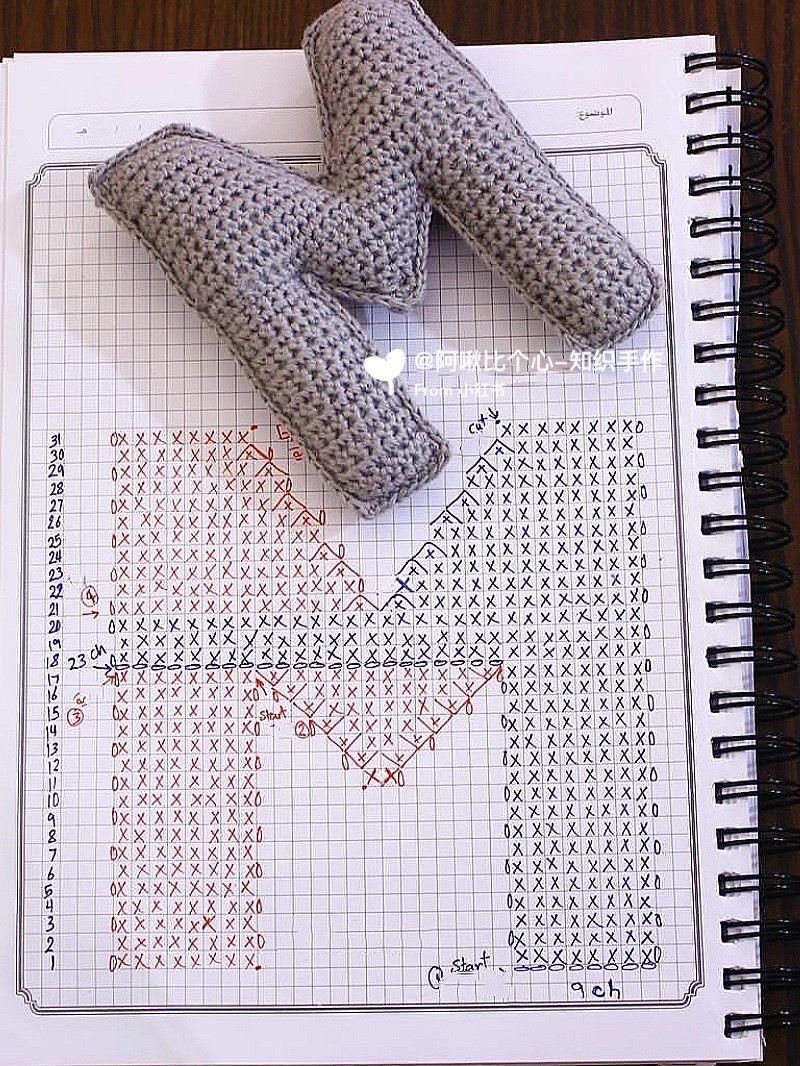 الموضوع
@阿啾比个心-知织手作
From 小红书
cut
31
30
29
28
27
26
25
24
23
22
④
21
20
19
23 ch
18
17
16
15
③
start
14
②
13
12
11
10
9
8
7
6
5
4
3
2
1
start
9 ch